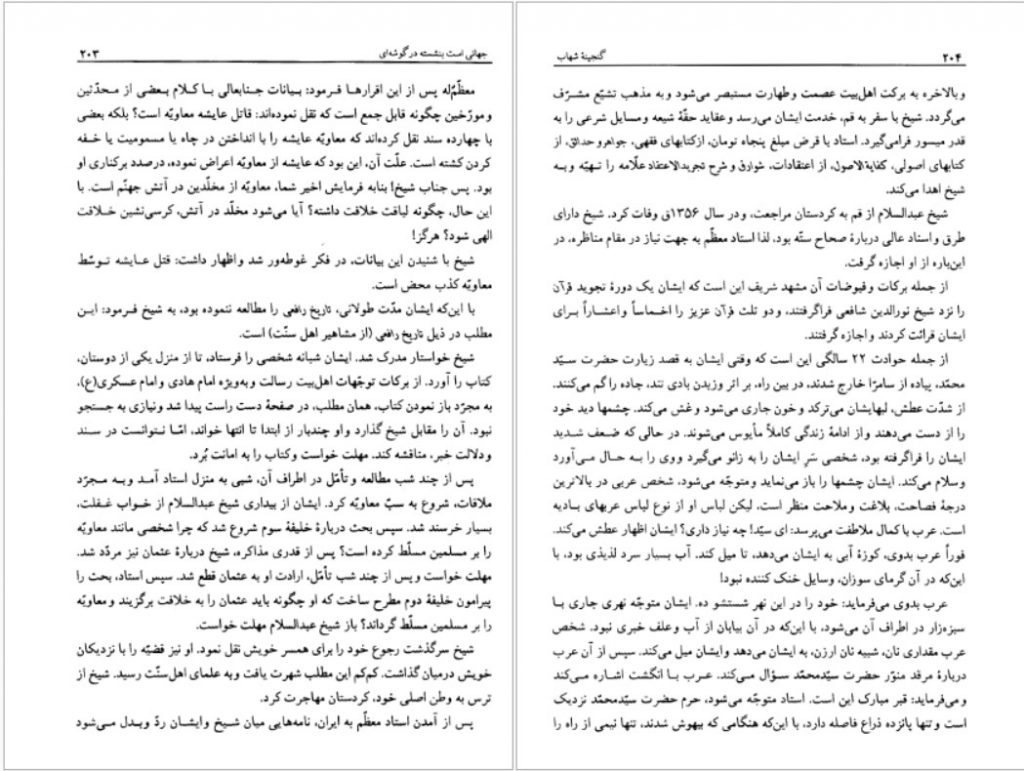 جهانی است بنشسته در گوشه‌ای ۲۰۳
معظّم‌له پس از این اقرارها فرمود: بیانات جنابعالی با کلام بعضی از محدّثین
و مورّخین چگونه قابل جمع است که نقل نموده‌اند: قاتل عایشه معاویّه است؟ بلکه بعضی
با چهارده سند نقل کرده‌اند که معاویّه عایشه را با انداختن در چاه یا مسمومیت یا خفه
کردن کشته است. علّت آن، این بود که عایشه از معاویّه اعراض نموده، درصدد برکناری او
بود. پس جناب شیخ! بنابه فرمایش اخیر شما، معاویّه از مخلّدین در آتش جهنّم است. با
این حال، چگونه لیاقت خلافت داشته؟ آیا می‌شود مخلّد در آتش، کرسی‌نشین خلافت
الهی شود؟ هرگز!
شیخ با شنیدن این بیانات، در فکر غوطه‌ور شد و اظهار داشت: قتل عایشه توسّط
معاویّه کذب محض است.
با این‌که ایشان مدّت طولانی، تاریخ رافعی را مطالعه ننموده بود، به شیخ فرمود: این
مطلب در ذیل تاریخ رافعی (از مشاهیر اهل سنّت) است.
شیخ خواستار مدرک شد. ایشان شبانه شخصی را فرستاد، تا از منزل یکی از دوستان،
کتاب را آورد. از برکات توجّهات اهل‌بیت رسالت و به‌ویژه امام هادی و امام عسکری(ع)،
به مجرّد باز نمودن کتاب، همان مطلب، در صفحهٔ دست راست پیدا شد و نیازی به جستجو
نبود. آن را مقابل شیخ گذارد و او چندبار از ابتدا تا انتها خواند، امّا نتوانست در سند
و دلالت خبر، مناقشه کند. مهلت خواست و کتاب را به امانت بُرد.
پس از چند شب مطالعه و تأمّل در اطراف آن، شبی به منزل استاد آمد و به مجرّد
ملاقات، شروع به سبّ معاویّه کرد. ایشان از بیداری شیخ عبدالسلام از خواب غفلت،
بسیار خرسند شد. سپس بحث دربارهٔ خلیفهٔ سوم شروع شد که چرا شخصی مانند معاویّه
را بر مسلمین مسلّط کرده است؟ پس از قدری مذاکره، شیخ دربارهٔ عثمان نیز مردّد شد.
مهلت خواست و پس از چند شب تأمّل، ارادت او به عثمان قطع شد. سپس استاد، بحث را
پیرامون خلیفهٔ دوم مطرح ساخت که او چگونه باید عثمان را به خلافت برگزیند و معاویّه
را بر مسلمین مسلّط گرداند؟ باز شیخ عبدالسلام مهلت خواست.
شیخ سرگذشت رجوع خود را برای همسر خویش نقل نمود. او نیز قضیّه را با نزدیکان
خویش درمیان گذاشت. کم‌کم این مطلب شهرت یافت و به علمای اهل‌سنّت رسید. شیخ از
ترس به وطن اصلی خود، کردستان مهاجرت کرد.
پس از آمدن استاد معظّم به ایران، نامه‌هایی میان شیخ و ایشان ردّ و بدل می‌شود
گنجینهٔ شهاب ۲۰۴
و بالاخره به برکت اهل‌بیت عصمت و طهارت مستبصر می‌شود و به مذهب تشیّع مشرّف
می‌گردد. شیخ با سفر به قم، خدمت ایشان می‌رسد و عقاید حقّهٔ شیعه و مسایل شرعی را به
قدر میسور فرامی‌گیرد. استاد با قرض مبلغ پنجاه تومان، ازکتابهای فقهی، جواهر و حدائق، از
کتابهای اصولی، کفایةالاصول، از اعتقادات، شوارق و شرح تجریدالاعتقاد علّامه را تهیّه و به
شیخ اهدا می‌کند.
شیخ عبدالسلام از قم به کردستان مراجعت، و در سال ۱۳۵۶ق وفات کرد. شیخ دارای
طرق و اسناد عالی دربارهٔ صحاح ستّه بود، لذا استاد معظّم به جهت نیاز در مقام مناظره، در
این‌باره از او اجازه گرفت.
از جمله برکات و فیوضات آن مشهد شریف این است که ایشان یک دورهٔ تجوید قرآن
را نزد شیخ نورالدین شافعی فراگرفتند، و دو ثلث قرآن عزیز را اخماساً و اعشاراً برای
ایشان قرائت کردند و اجازه گرفتند.
از جمله حوادث ۲۲ سالگی این است که وقتی ایشان به قصد زیارت حضرت سیّد
محمّد، پیاده از سامرّا خارج شدند، در بین راه، بر اثر وزیدن بادی تند، جاده را گم می‌کنند.
از شدّت عطش، لبهایشان می‌ترکد و خون جاری می‌شود و غش می‌کند. چشمها دید خود
را از دست می‌دهند و از ادامهٔ زندگی کاملاً مأیوس می‌شوند. در حالی که ضعف شدید
ایشان را فراگرفته بود، شخصی سَرِ ایشان را به زانو می‌گیرد و وی را به حال می‌آورد
و سلام می‌کند. ایشان چشمها را باز می‌نماید و متوجّه می‌شود، شخص عربی در بالاترین
درجهٔ فصاحت، بلاغت و ملاحت منظر است، لیکن لباس او از نوع لباس عربهای بادیه
است. عرب با کمال ملاطفت می‌پرسد: ای سیّد! چه نیاز داری؟ ایشان اظهار عطش می‌کند.
فوراً عرب بدوی، کوزهٔ آبی به ایشان می‌دهد، تا میل کند. آب بسیار سرد لذیذی بود، با
این‌که در آن گرمای سوزان، وسایل خنک کننده نبود!
عرب بدوی می‌فرماید: خود را در این نهر شستشو ده. ایشان متوجّه نهری جاری با
سبزه‌زار در اطراف آن می‌شود، با این‌که در آن بیابان از آب و علف خبری نبود. شخص
عرب مقداری نان، شبیه نان ارزن، به ایشان می‌دهد و ایشان میل می‌کند. سپس از آن عرب
دربارهٔ مرقد منوّر حضرت سیّدمحمّد سؤال می‌کند. عرب با انگشت اشاره می‌کند
و می‌فرماید: قبر مبارک این است. استاد متوجّه می‌شود، حرم حضرت سیّدمحمّد نزدیک
است و تنها پانزده ذراع فاصله دارد، با این‌که هنگامی که بیهوش شدند، تنها نیمی از راه را